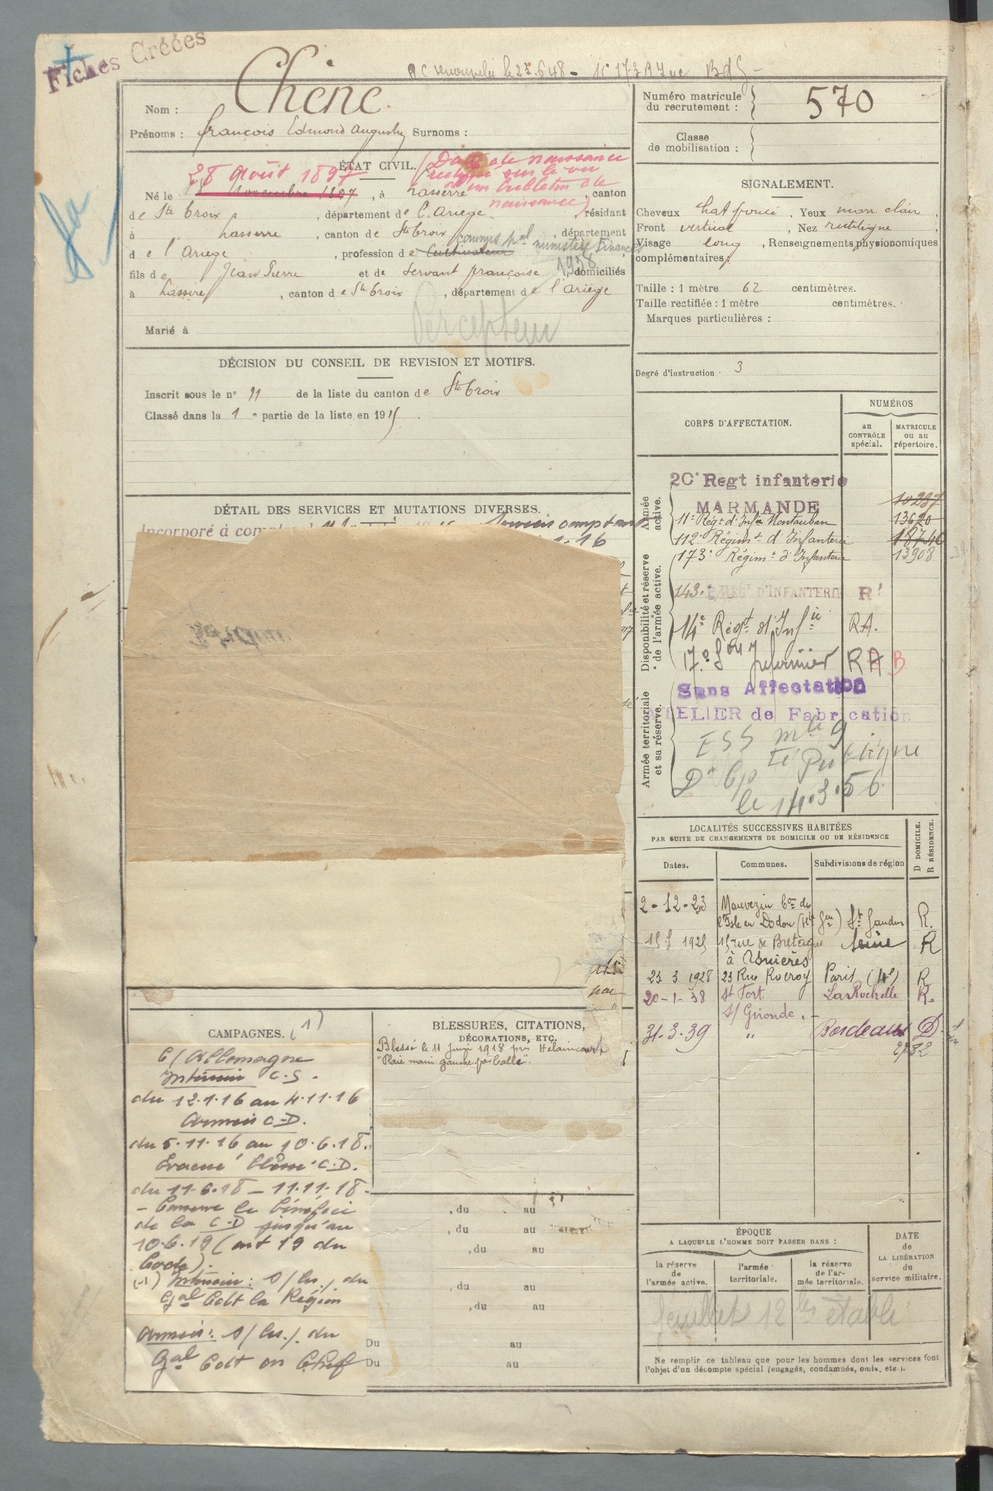 Fiches Créées
Chêne
Nom :
Prénoms : françois Edmond Auguste Surnoms :
Numéro matricule du recrutement : 570
Classe de mobilisation :
ÉTAT CIVIL.
28 Août 1897
Date de naissance
rectifié sur le vu
d'un bulletin de
naissance
Né le Novembre 1897, à Lasserre canton
de Ste Croix, département de l'Ariège, résidant
à Lasserre, canton de Ste Croix, département
commis pal ministère Finances
de l'Ariège, profession de Cultivateur
1938
fils de Jean Pierre et de Servant françoise, domiciliés
à Lasserre, canton de Ste Croix, département de l'Ariège
Percepteur
Marié à
SIGNALEMENT.
Cheveux chat foncé, Yeux marr clair,
Front vertical, Nez rectiligne,
Visage long, Renseignements physionomiques
complémentaires :
Taille : 1 mètre 62 centimètres.
Taille rectifiée : 1 mètre centimètres.
Marques particulières :
Degré d'instruction 3
DÉCISION DU CONSEIL DE REVISION ET MOTIFS.
Inscrit sous le n° 11 de la liste du canton de Ste Croix
Classé dans la 1e partie de la liste en 1915
DÉTAIL DES SERVICES ET MUTATIONS DIVERSES.
Incorporé à compter
CORPS D'AFFECTATION.
NUMÉROS
au CONTRÔLE spécial.
MATRICULE ou au répertoire.
Armée active.
20e Regt infanterie
MARMANDE
10297
11e Régt d'Infie Montauban 13620
112e Régimt d'Infanterie 18746
173e Régimt d'Infanterie 13908
Disponibilité et réserve de l'armée active.
143e REGt D'INFANTERIE Rt
14e Régt d'Infie RA.
17e Son Infirmier RA B
Armée territoriale et sa réserve.
Sans Affectation
TELIER de Fabrication
le 14.3.56
LOCALITÉS SUCCESSIVES HABITÉES
PAR SUITE DE CHANGEMENTS DE DOMICILE OU DE RÉSIDENCE
D DOMICILE.
R RÉSIDENCE.
Dates. Communes. Subdivisions de région
2-12-23 Mauvezin Con de
l'Isle en Dodon (Hte Gne) St Gaudens R.
1925 15 rue de Bretagne Seine R
à Asnières
23 3 1928 23 Rue Rocroy Paris (4e) R
20-1-38 St Fort La Rochelle R.
s/ Gironde.
31-3-39 " Bordeaux D
CAMPAGNES. (1)
C/ Allemagne
Intérieur C.S.
du 12.1.16 au 4.11.16
Armées C.D.
du 5.11.16 au 10.6.18.
Evacué blessé C.D.
du 11.6.18 — 11.11.18.
- Conserve le bénéfice
de la C.D jusqu'au
10.6.19 (art 19 du
Code).
(1) Intérieur : s/ les/ du
Gal Cdt la Région
Armées : s/ les/. du
Gal Cdt en Chef
BLESSURES, CITATIONS,
DÉCORATIONS, ETC.
Blessé le 11 Juin 1918 près Hélaincourt
"Plaie main gauche par balle"
, du au
, du au
, du au
, du au
, du au
Du au
Du au
ÉPOQUE
A LAQUELLE L'HOMME DOIT PASSER DANS :
la réserve de l'armée active.
l'armée territoriale.
la réserve de l'armée territoriale.
DATE de LA LIBÉRATION du service militaire.
feuillets 12 bis établi
Ne remplir ce tableau que pour les hommes dont les services font
l'objet d'un décompte spécial (engagés, condamnés, omis, etc.).